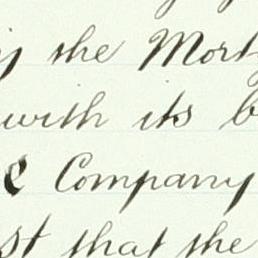 the Mort
with its b
& Company
st that the